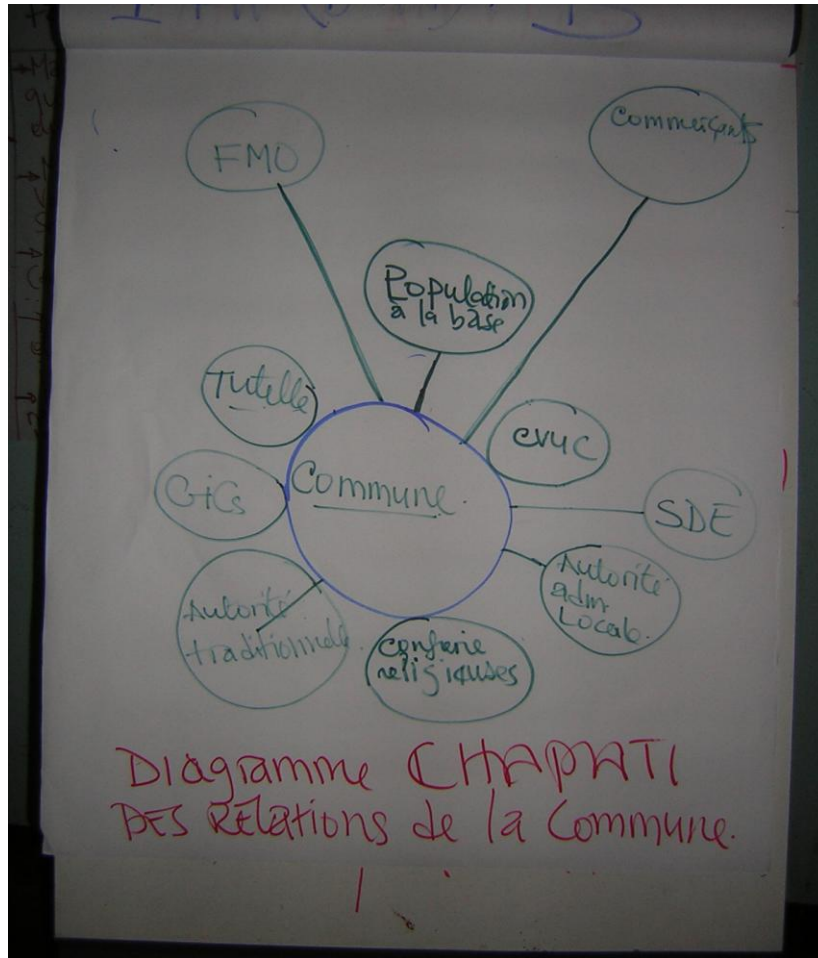 FMO
Commerçants
Population
à la base
Tutelle
CVUC
GiCs
Commune.
SDE
Autorité
adm.
Locale.
Autorité
traditionnelle
Confrerie
religieuses
Diagramme CHAPATI
DES RELations de la Commune.